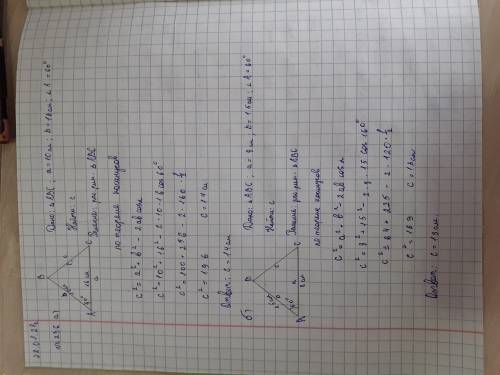 22.01.21
№ 296 а)
Дано: △ABC; a = 10 см; b = 16 см; ∠A = 60°
Найти: c
Решение: рассм. △ABC
по теореме косинусов
c² = a² + b² - 2ab cos α
c² = 10² + 16² - 2·10·16 cos 60°
c² = 100 + 256 - 2·160·½
c² = 196 c = 14 см
Ответ: c = 14 см
б)
Дано: △ABC; a = 8 см; b = 15 см; ∠A = 60°
Найти: c
Решение: рассм. △ABC
по теореме косинусов
c² = a² + b² - 2ab cos α
c² = 8² + 15² - 2·8·15 cos 60°
c² = 64 + 225 - 2·120·½
c² = 169 c = 13 см
Ответ: c = 13 см